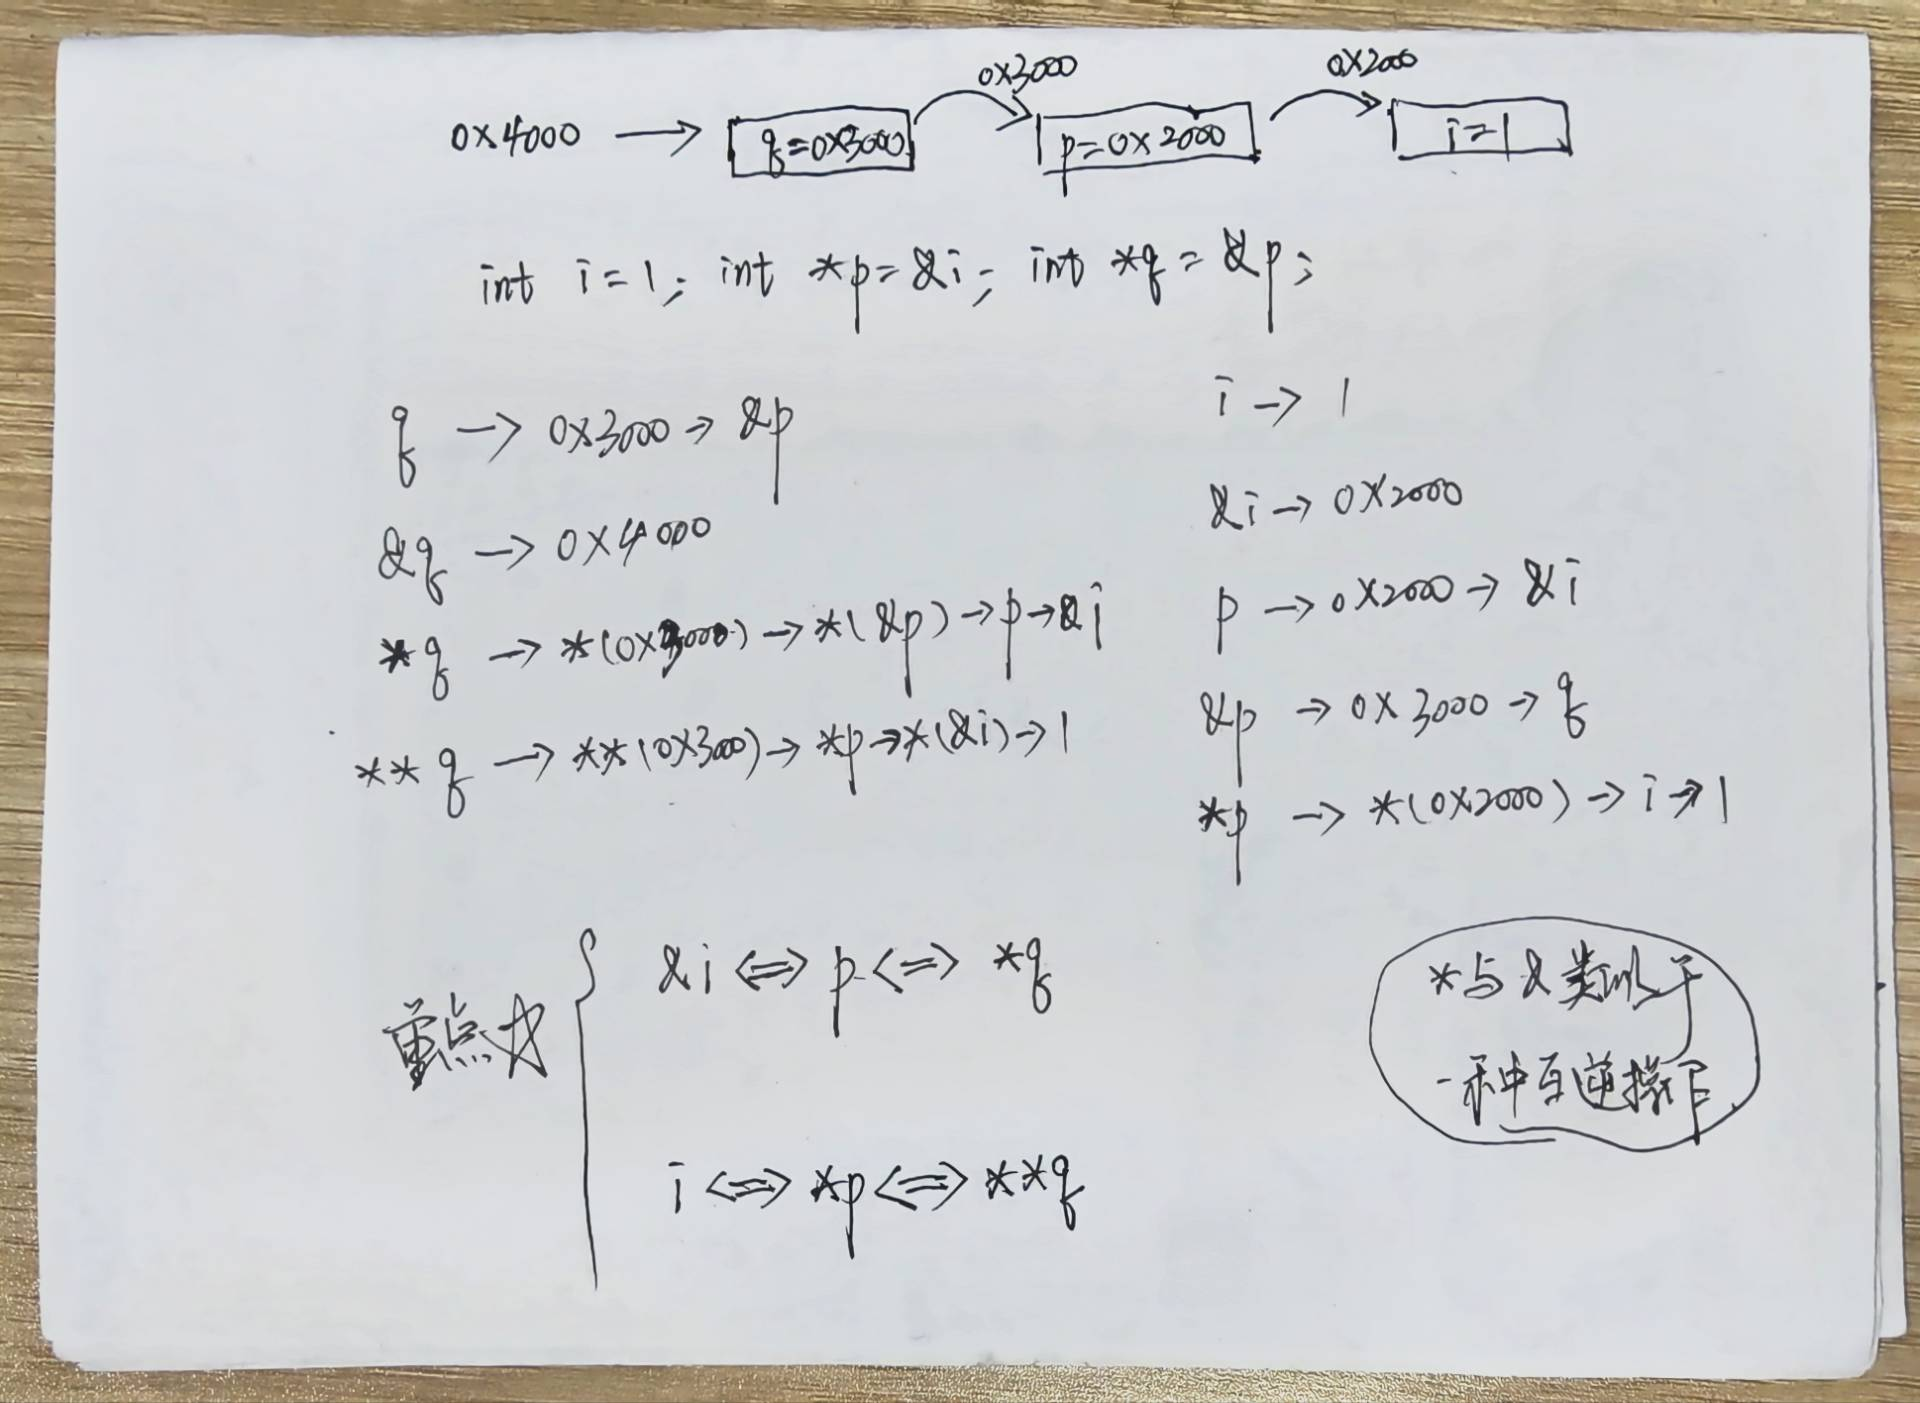 0x3000 0x2000
0x4000 → q=0x3000 p=0x2000 i=1
int i=1; int *p=&i; int *q=&p;
q → 0x3000 → &p
&q → 0x4000
*q → *(0x3000) → *(&p) → p → &i
**q → **(0x3000) → *p → *(&i) → 1
i → 1
&i → 0x2000
p → 0x2000 → &i
&p → 0x3000 → q
*p → *(0x2000) → i → 1
重点☆
&i <=> p <=> *q
i <=> *p <=> **q
*与&类似于
一种互逆操作